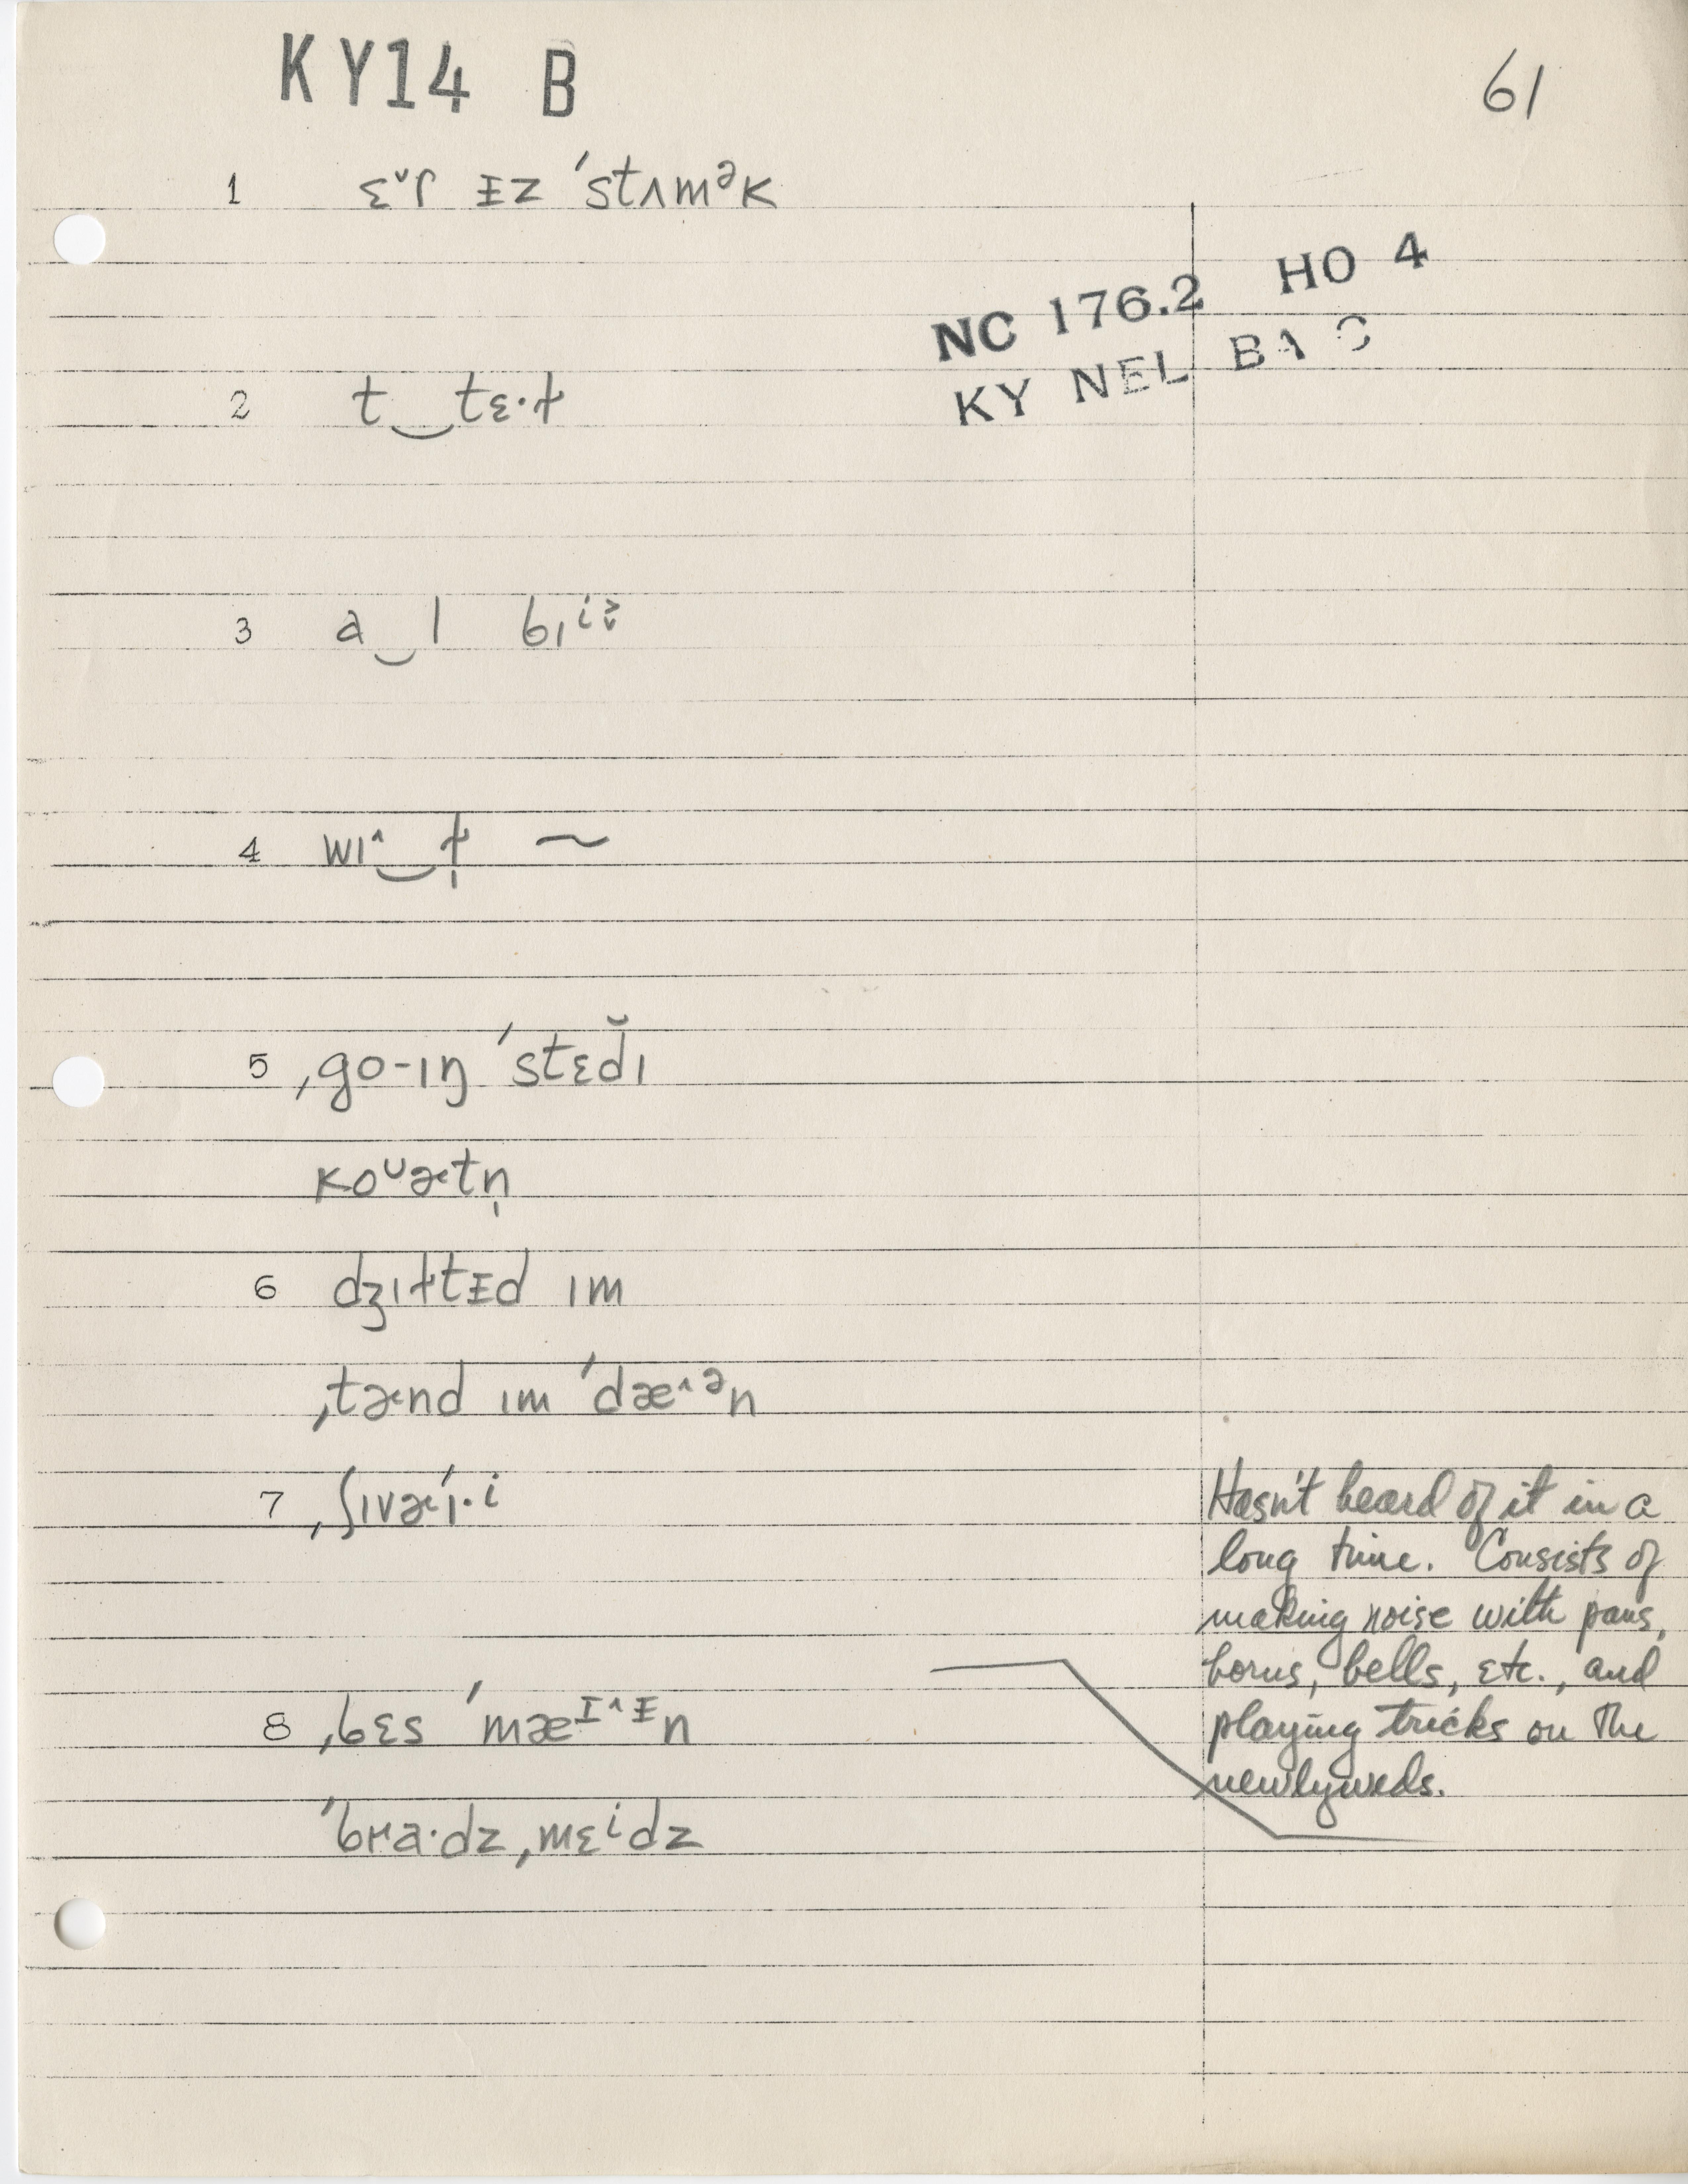 KY14 B
61
1 ɛ˅ɾ ᵻz ˈstʌmᵊk
NC 176.2 HO 4
KY NEL BA C
2 t‿tɛ·ɫ
3 a‿l
4 wɪ^‿ɫ̩ ~
5 ˌgo-ɪŋ ˈstɛd̆ɪ
koᶷɚtn̩
6 dʒɪɫtᵻd ɪm
ˌtɚnd ɪm ˈdæ^ᵊn
7
Hasn't heard of it in a
long time. Consists of
making noise with pans,
horns, bells, etc., and
playing tricks on the
newlyweds.
8 ˌbɛs ˈmæᶦ^ᵻn
ˈbɹa·dzˌmɛⁱdz